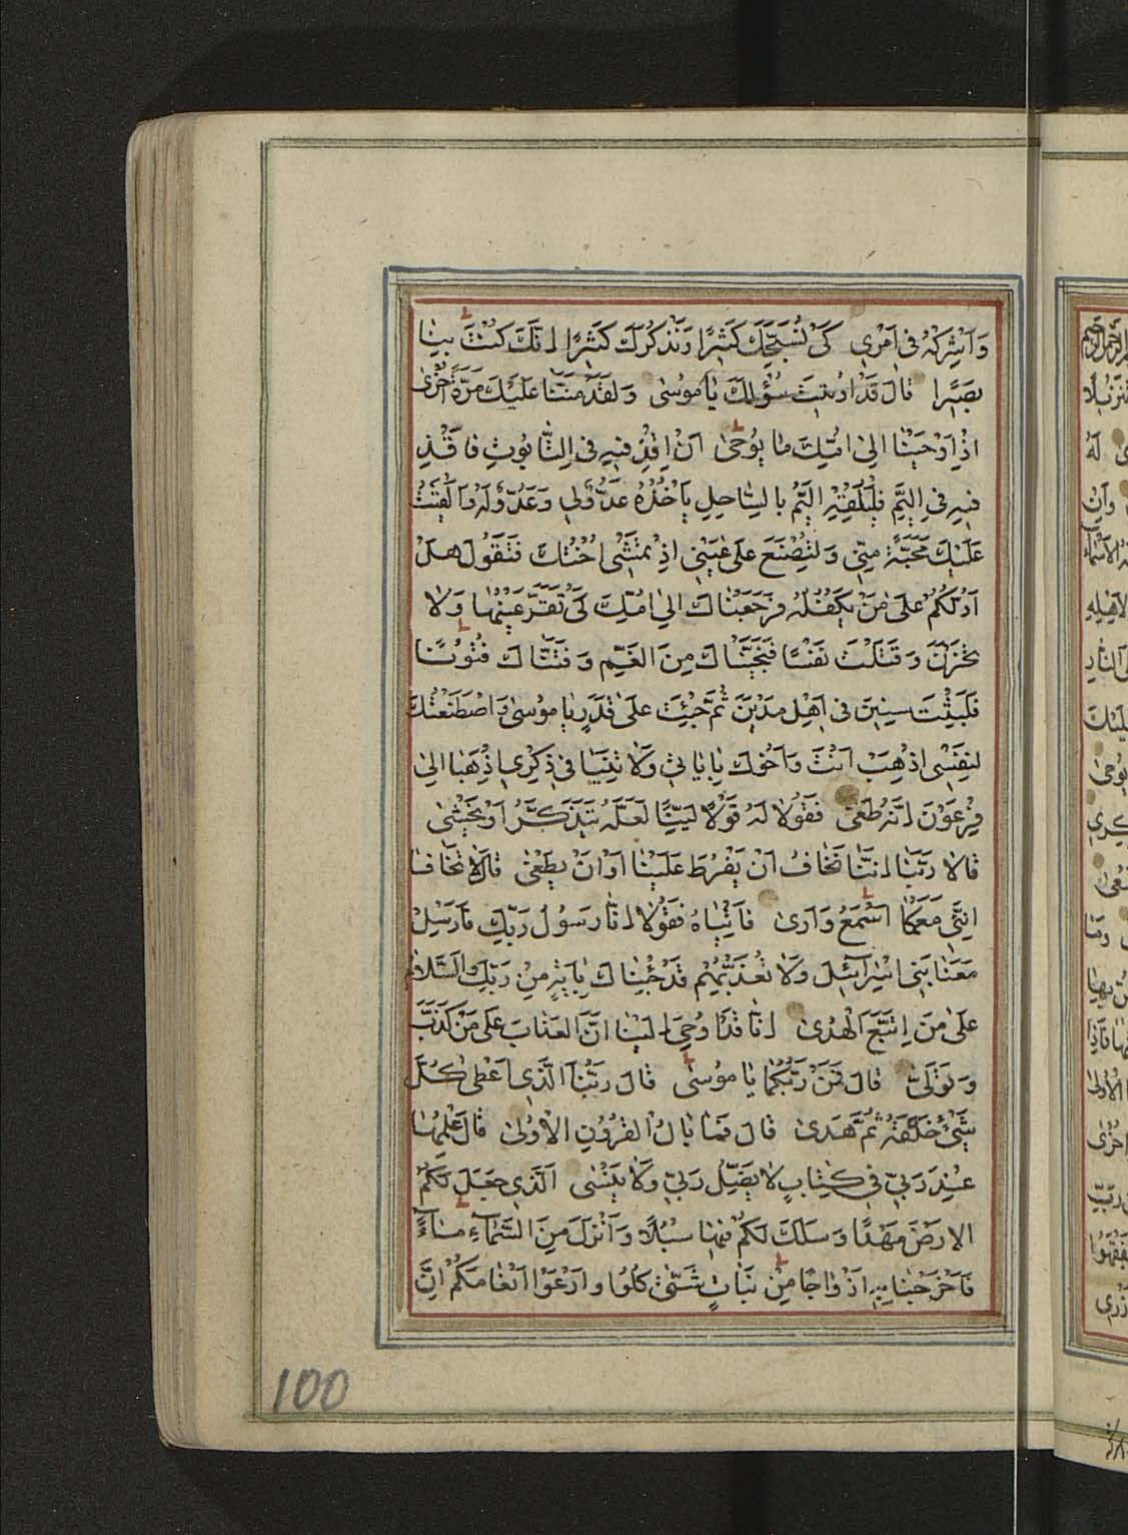 وَاَشْرِكْهُ فى اَمْرِي كَىْ نُسَبِّحَكَ كَثِيرًا وَنَذْكُرَكَ كَثِيرًا اِنَّكَ كُنْتَ بِنَا
بَصِيرًا قَالَ قَدْ اُوتِيتَ سُؤْلَكَ يَا مُوسٰى وَلَقَدْ مَنَنَّا عَلَيْكَ مَرَّةً اُخْرٰى
اِذْ اَوْحَيْنَا اِلٰى اُمِّكَ مَا يُوحٰى اَنِ اقْذِفِيهِ فِى التَّابُوتِ فَاقْذِ
فِيهِ فِى الْيَمِّ فَلْيُلْقِهِ الْيَمُّ بِالسَّاحِلِ يَأْخُذْهُ عَدُوٌّ لِى وَعَدُوٌّ لَهُ وَاَلْقَيْتُ
عَلَيْكَ مَحَبَّةً مِنِّى وَلِتُصْنَعَ عَلٰى عَيْنِى اِذْ تَمْشِى اُخْتُكَ فَتَقُولُ هَلْ
اَدُلُّكُمْ عَلٰى مَنْ يَكْفُلُهُ فَرَجَعْنَاكَ اِلٰى اُمِّكَ كَىْ تَقَرَّ عَيْنُهَا وَلَا
تَحْزَنَ وَقَتَلْتَ نَفْسًا فَنَجَّيْنَاكَ مِنَ الْغَمِّ وَفَتَنَّاكَ فُتُونًا
فَلَبِثْتَ سِنِينَ فى اَهْلِ مَدْيَنَ ثُمَّ جِئْتَ عَلٰى قَدَرٍ يَا مُوسٰى وَاصْطَنَعْتُكَ
لِنَفْسِى اِذْهَبْ اَنْتَ وَاَخُوكَ بِاٰيَاتِى وَلَا تَنِيَا فى ذِكْرِى اِذْهَبَا اِلٰى
فِرْعَوْنَ اِنَّهُ طَغٰى فَقُولَا لَهُ قَوْلًا لَيِّنًا لَعَلَّهُ يَتَذَكَّرُ اَوْ يَخْشٰى
قَالَا رَبَّنَا اِنَّنَا نَخَافُ اَنْ يَفْرُطَ عَلَيْنَا اَوْ اَنْ يَطْغٰى قَالَ لَا تَخَافَا
اِنَّنِى مَعَكُمَا اَسْمَعُ وَاَرٰى فَأْتِيَاهُ فَقُولَا اِنَّا رَسُولَا رَبِّكَ فَاَرْسِلْ
مَعَنَا بَنِى اِسْرَآئِيلَ وَلَا تُعَذِّبْهُمْ قَدْ جِئْنَاكَ بِاٰيَةٍ مِنْ رَبِّكَ وَالسَّلَامُ
عَلٰى مَنِ اتَّبَعَ الْهُدٰى اِنَّا قَدْ اُوحِىَ اِلَيْنَا اَنَّ الْعَذَابَ عَلٰى مَنْ كَذَّبَ
وَتَوَلّٰى قَالَ فَمَنْ رَبُّكُمَا يَا مُوسٰى قَالَ رَبُّنَا الَّذِى اَعْطٰى كُلَّ
شَىْءٍ خَلْقَهُ ثُمَّ هَدٰى قَالَ فَمَا بَالُ الْقُرُونِ الْاُولٰى قَالَ عِلْمُهَا
عِنْدَ رَبِّى فى كِتَابٍ لَا يَضِلُّ رَبِّى وَلَا يَنْسٰى اَلَّذِى جَعَلَ لَكُمُ
الْاَرْضَ مَهْدًا وَسَلَكَ لَكُمْ فِيهَا سُبُلًا وَاَنْزَلَ مِنَ السَّمَآءِ مَآءً
فَاَخْرَجْنَا بِهِ اَزْوَاجًا مِنْ نَبَاتٍ شَتّٰى كُلُوا وَارْعَوْا اَنْعَامَكُمْ اِنَّ
100